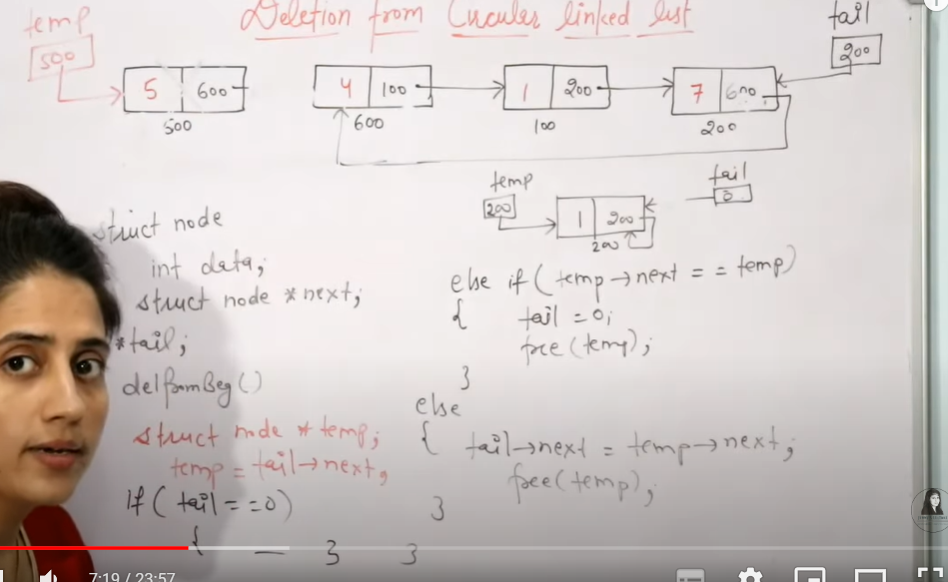 Deletion from Circular linked list
temp
500
tail
200
5 600
500
4 100
600
1 200
100
7 600
200
temp
200
1 200
200
tail
0
struct node
int data;
struct node *next;
*tail;
delfromBeg()
struct node *temp;
temp = tail→next;
if( tail==0)
{ — } }
else if( temp→next == temp)
{ tail = 0;
free(temp);
}
else
{ tail→next = temp→next;
free(temp);
}
7:19 / 23:57